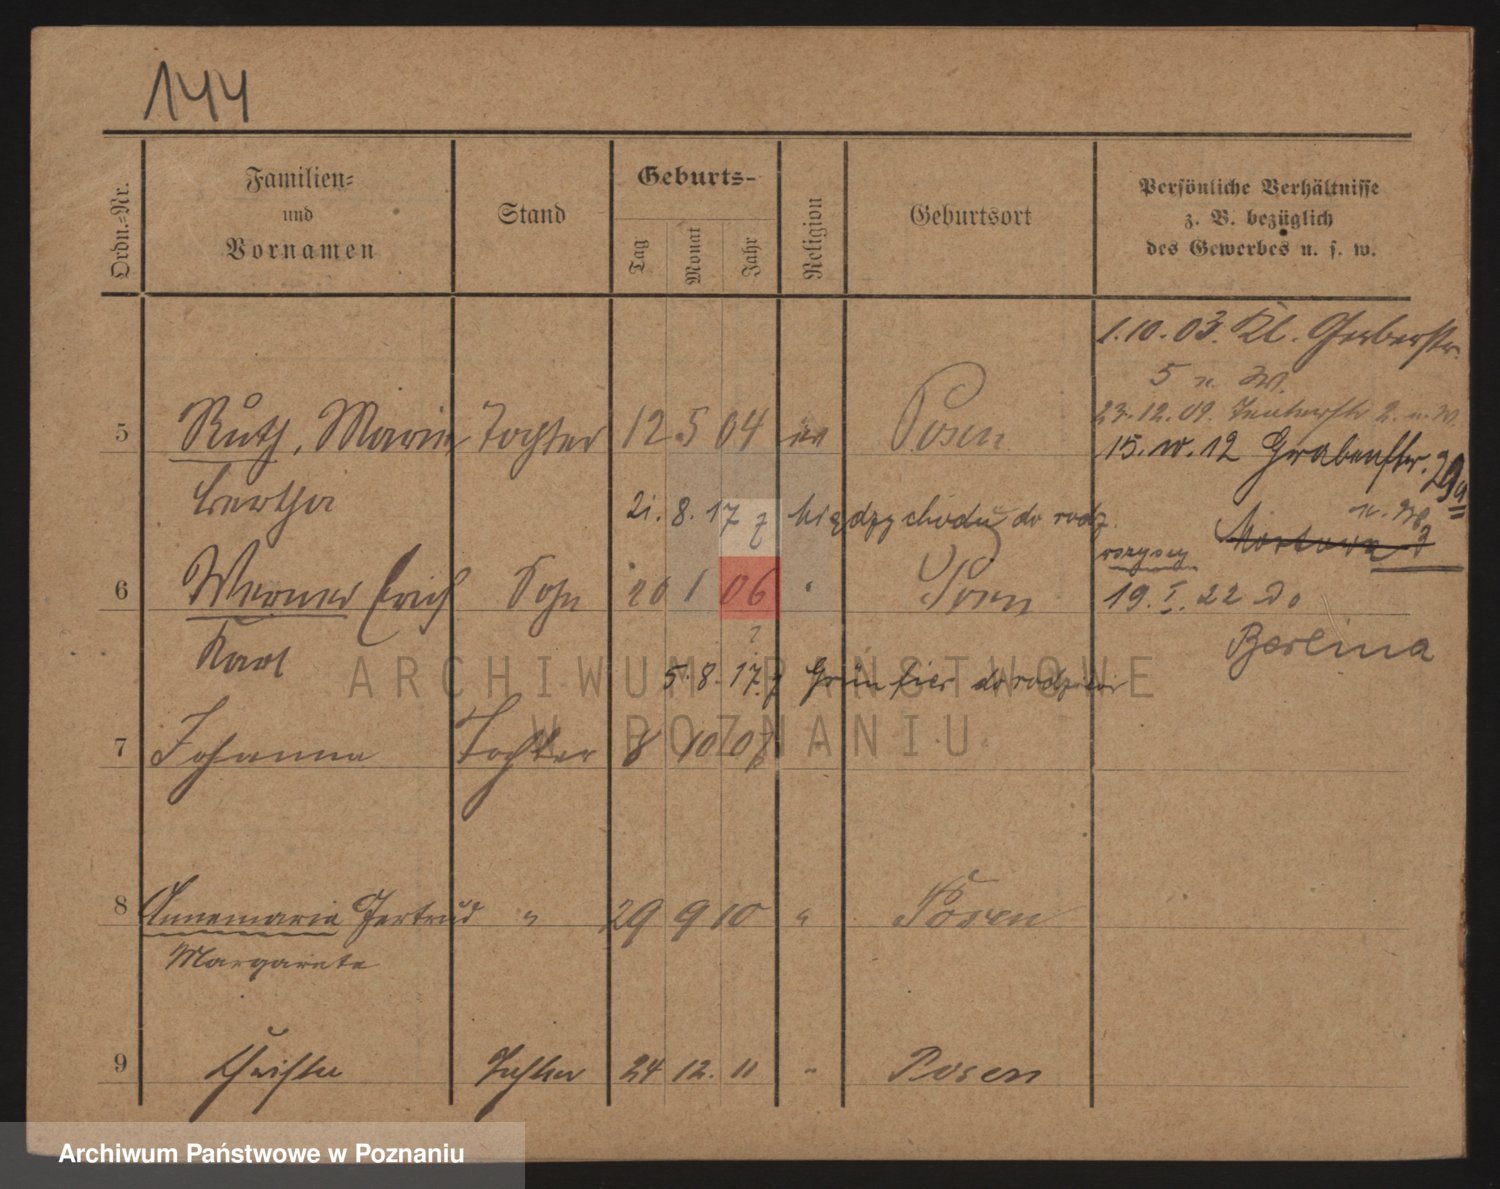 144
Ordn.-Nr.
Familien-
und
Vornamen
Stand
Geburts-
Tag
Monat
Jahr
Religion
Geburtsort
Persönliche Verhältnisse
z. B. bezüglich
des Gewerbes u. s. w.
1.10.03. Kl. Gerberstr.
5 n. W.
23.12.09. 2. n. W.
5 Ruth, Marie Tochter 12 5 04 Posen
15. 12 Grabenstr. 29a
Bertha
21. 8. 17 z Międzychodu do rodz.
6 Werner Erich Sohn 1 06 " Posen
19. I. 22 do
Berlina
Karl
5. 8. 17. z do rodziców
7 Johanna Tochter 8 10 07 "
8 Annemarie Gertrud " 29 9 10 " Posen
Margarete
9 Tochter 24 12. 11 " Posen
ARCHIWUM PAŃSTWOWE
W POZNANIU
Archiwum Państwowe w Poznaniu